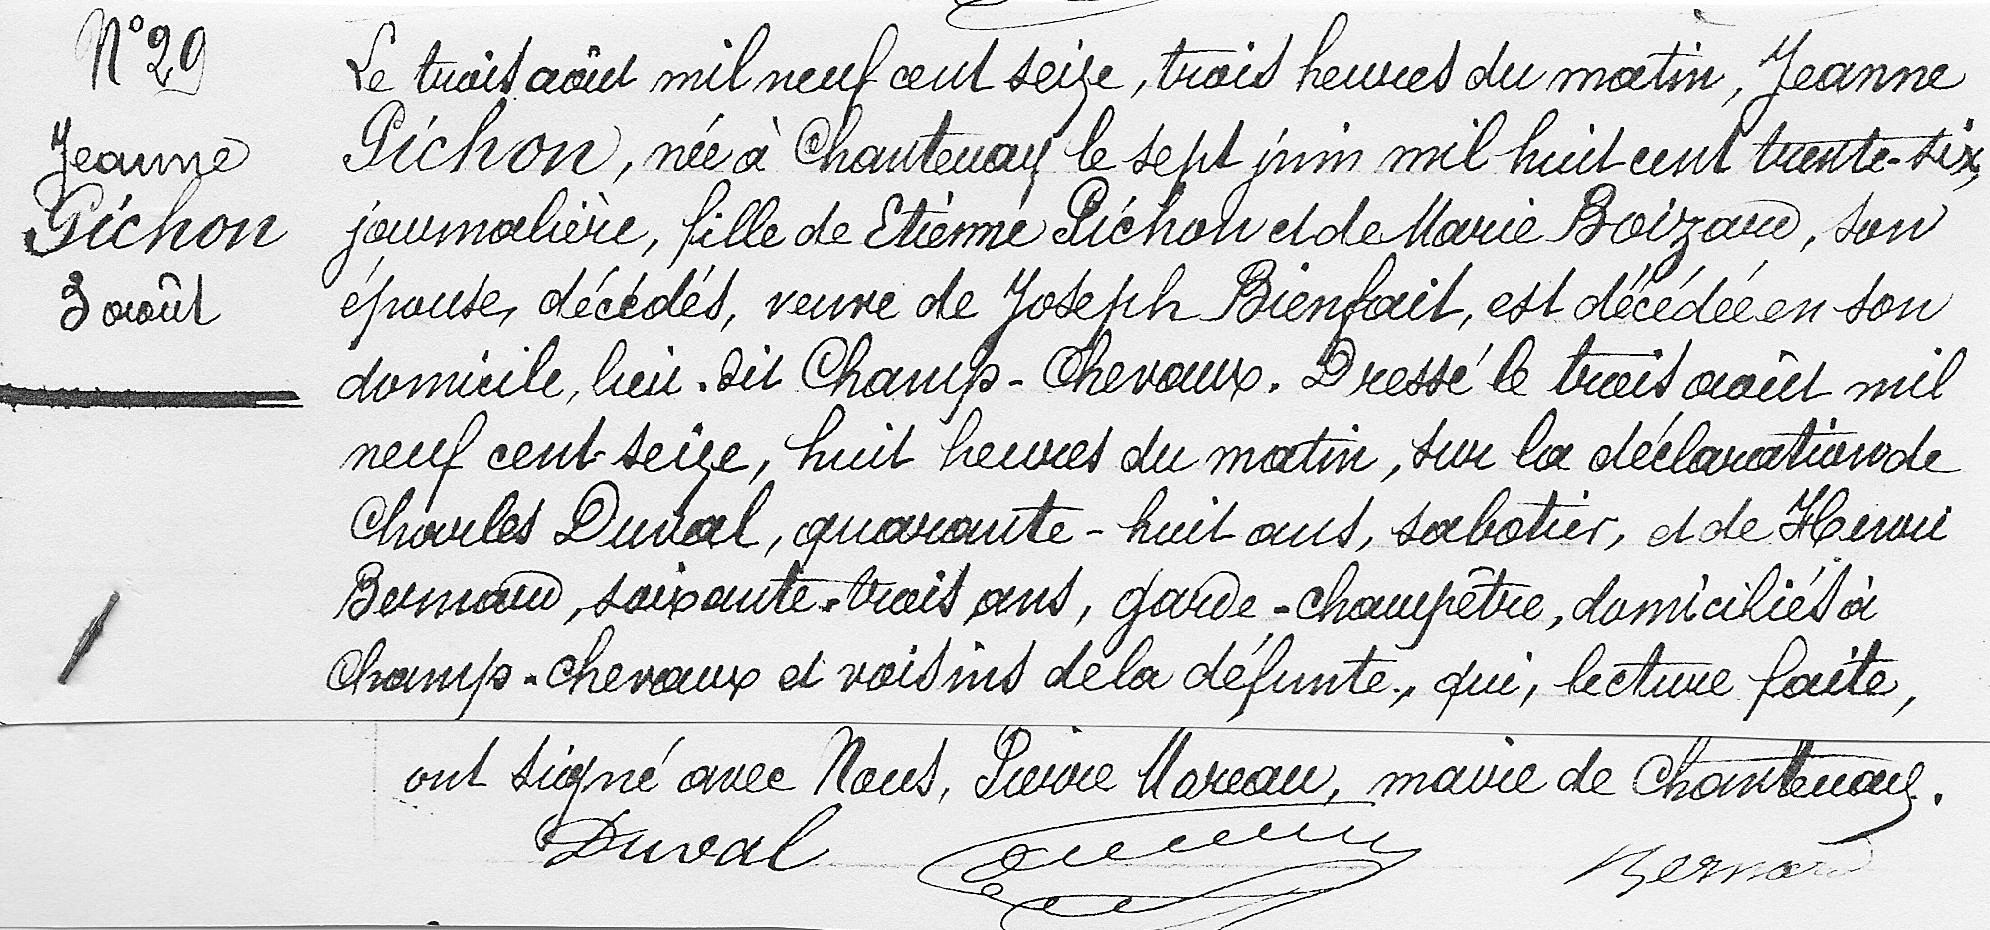 N° 29
Jeanne
Pichon
3 août
Le trois août mil neuf cent seize, trois heures du matin, Jeanne
Pichon, née à Chantenay le sept juin mil huit cent trente-six,
journalière, fille de Etienne Pichon et de Marie Boizard, son
épouse, décédés, veuve de Joseph Bienfait, est décédée en son
domicile, lieu-dit Champ-Chevaux. Dressé le trois août mil
neuf cent seize, huit heures du matin, sur la déclaration de
Charles Duval, quarante-huit ans, sabotier, et de Henri
Bernard, soixante-trois ans, garde-champêtre, domiciliés à
Champ-Chevaux et voisins de la défunte, qui, lecture faite,
ont signé avec Nous, Pierre Moreau, maire de Chantenay.
Duval
Bernard